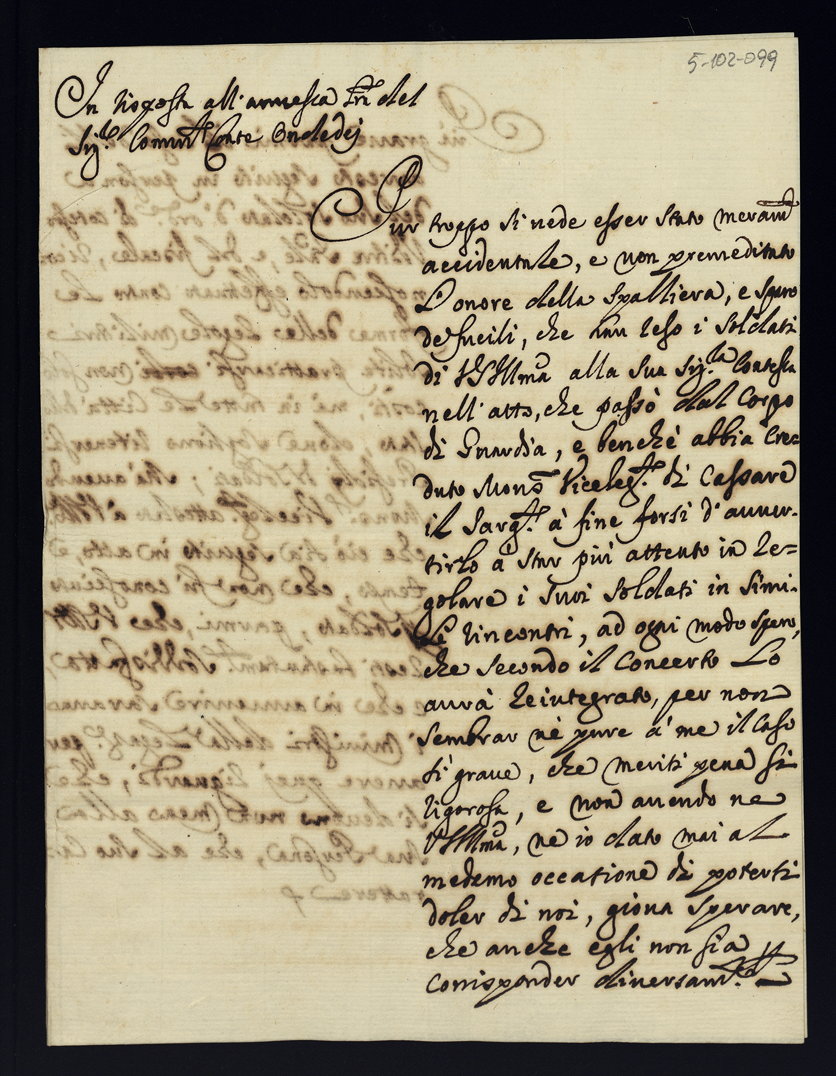 5-102-099
In risposta all'annessa Lra del
Sig.r Comm.te Conte Ondedej
Pur troppo si vede esser stato meram.te
accidentale, e non premeditato
L'onore della Spalliera, e sparo
de fucili, che han reso i Soldati
di VS Illma alla Sua Sig.ra Contessa
nell'atto, che passò dal Corpo
di Guardia, e benchè abbia cre=
duto Mons.r Viceleg.to di Cassare
il Sarg.te à fine forsi d'avver-
tirlo à star più attento in re=
golare i Suoi Soldati in simi-
le rincontri, ad ogni modo spero,
che secondo il Concerto Lo
avrà reintegrato, per non
sembrar nè pure à me il caso
sì grave, che meriti pena sì
rigorosa, e non avendo ne
VS Illma, ne io dato mai al
medemo occatione di potersi
doler di noi, giova sperare,
che anche egli non sia p
corrisponder diversam.te